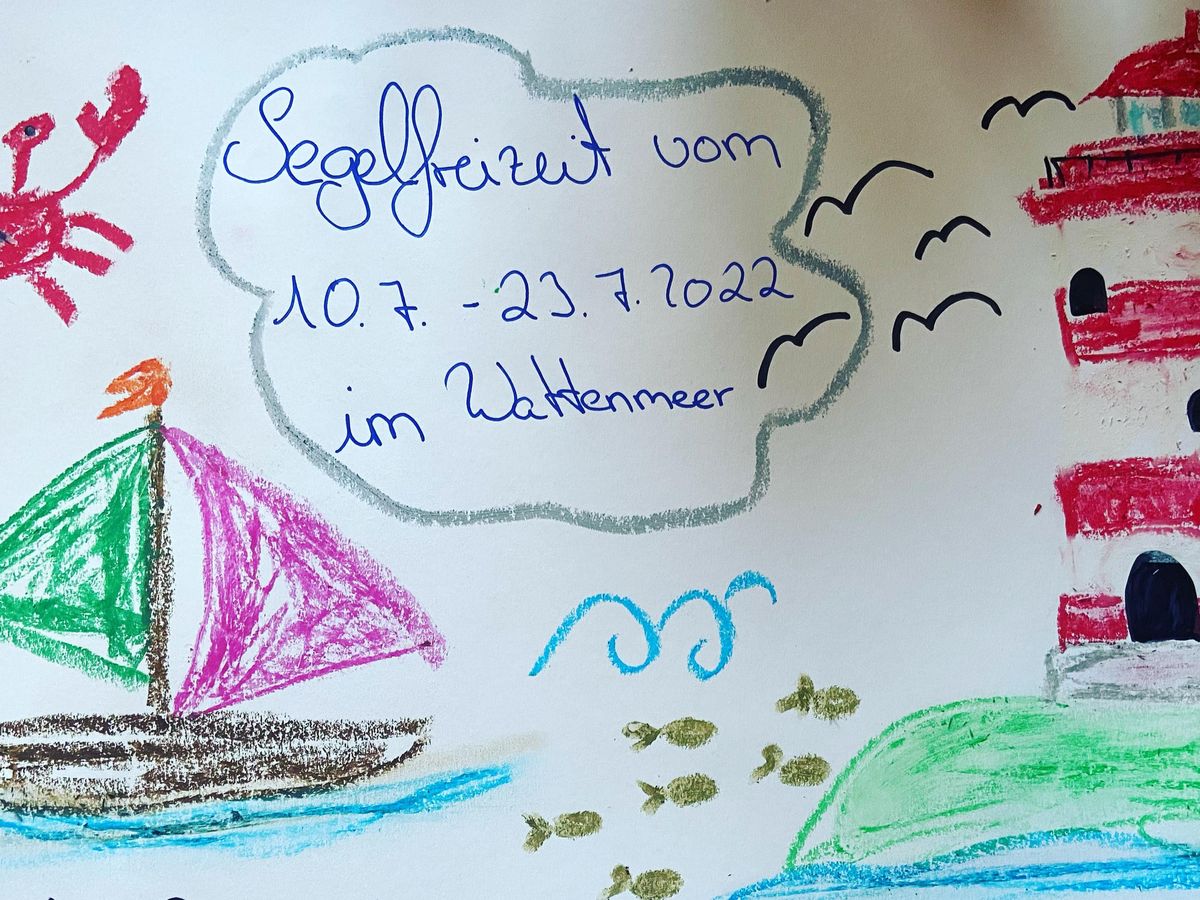 Segelfreizeit vom
10.7. - 23.7.2022
im Wattenmeer